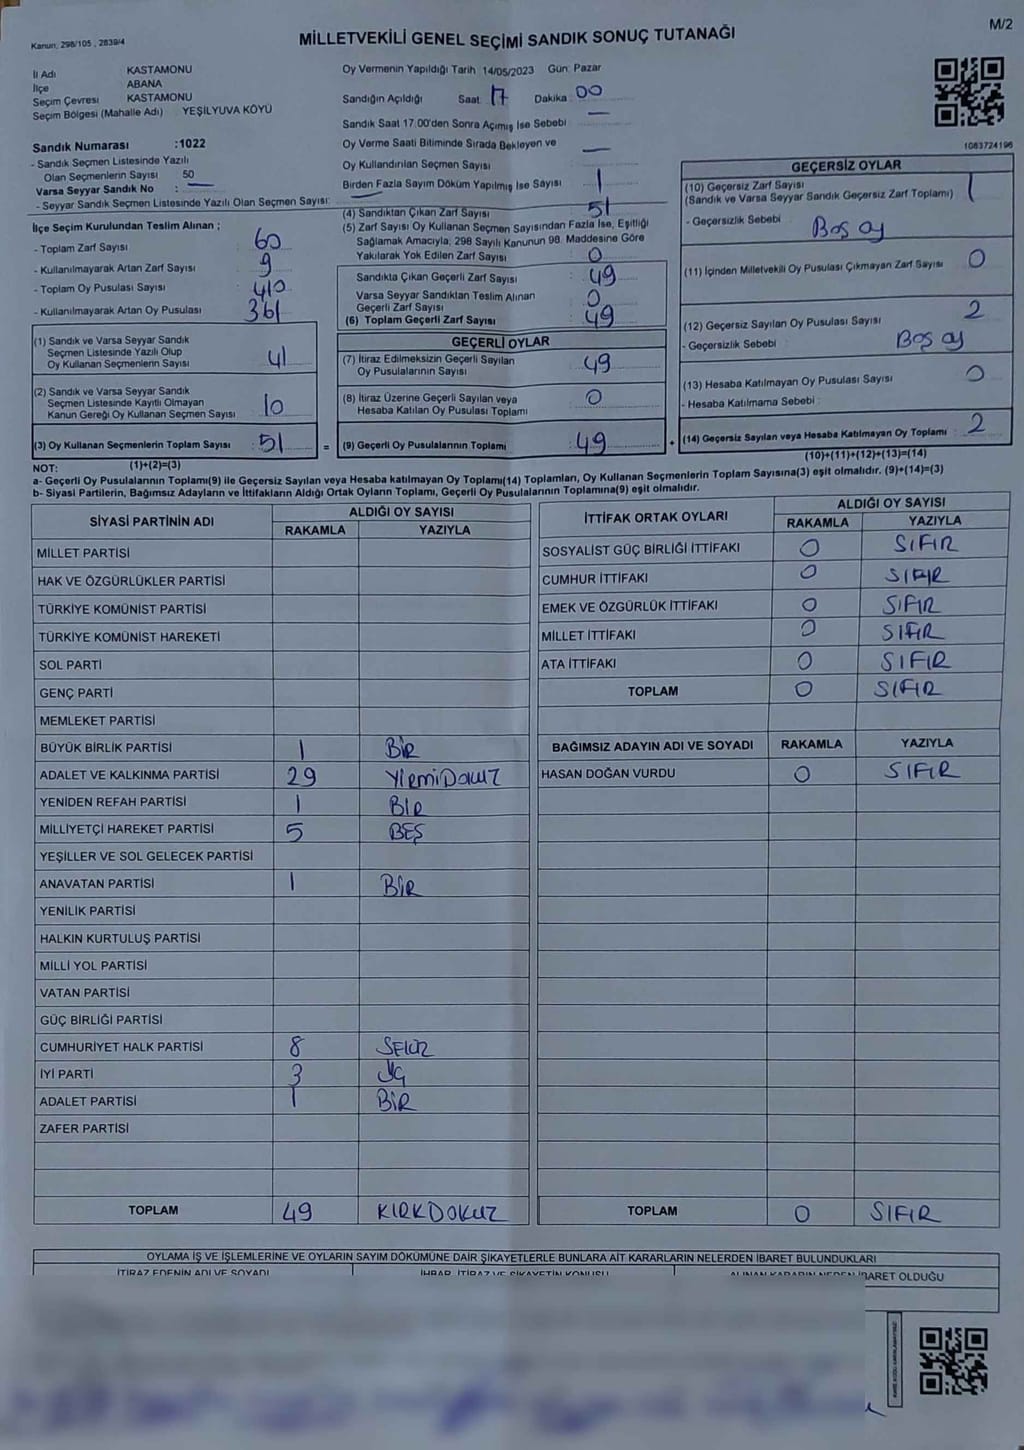 M/2
Kanun, 298/105 , 2839/4
MİLLETVEKİLİ GENEL SEÇİMİ SANDIK SONUÇ TUTANAĞI
İl Adı KASTAMONU
İlçe ABANA
Seçim Çevresi KASTAMONU
Seçim Bölgesi (Mahalle Adı) YEŞİLYUVA KÖYÜ
Sandık Numarası :1022
- Sandık Seçmen Listesinde Yazılı
Olan Seçmenlerin Sayısı 50
Varsa Seyyar Sandık No : —
- Seyyar Sandık Seçmen Listesinde Yazılı Olan Seçmen Sayısı: —
Oy Vermenin Yapıldığı Tarih 14/05/2023 Gün: Pazar
Sandığın Açıldığı Saat 17 Dakika 00
Sandık Saat 17:00'den Sonra Açımış İse Sebebi —
Oy Verme Saati Bitiminde Sırada Bekleyen ve
Oy Kullandırılan Seçmen Sayısı —
Birden Fazla Sayım Döküm Yapılmış İse Sayısı 1
1083724196
İlçe Seçim Kurulundan Teslim Alınan ;
- Toplam Zarf Sayısı : 60
- Kullanılmayarak Artan Zarf Sayısı : 9
- Toplam Oy Pusulası Sayısı : 410
- Kullanılmayarak Artan Oy Pusulası : 361
(1) Sandık ve Varsa Seyyar Sandık
Seçmen Listesinde Yazılı Olup
Oy Kullanan Seçmenlerin Sayısı : 41
(2) Sandık ve Varsa Seyyar Sandık
Seçmen Listesinde Kayıtlı Olmayan
Kanun Gereği Oy Kullanan Seçmen Sayısı : 10
(3) Oy Kullanan Seçmenlerin Toplam Sayısı : 51 =
(4) Sandıktan Çıkan Zarf Sayısı : 51
(5) Zarf Sayısı Oy Kullanan Seçmen Sayısından Fazla İse, Eşitliği
Sağlamak Amacıyla; 298 Sayılı Kanunun 98. Maddesine Göre
Yakılarak Yok Edilen Zarf Sayısı : 0
Sandıkta Çıkan Geçerli Zarf Sayısı : 49
Varsa Seyyar Sandıktan Teslim Alınan
Geçerli Zarf Sayısı : 0
(6) Toplam Geçerli Zarf Sayısı : 49
GEÇERLİ OYLAR
(7) İtiraz Edilmeksizin Geçerli Sayılan
Oy Pusulalarının Sayısı : 49
(8) İtiraz Üzerine Geçerli Sayılan veya
Hesaba Katılan Oy Pusulası Toplamı : 0
(9) Geçerli Oy Pusulalarının Toplamı : 49 +
GEÇERSİZ OYLAR
(10) Geçersiz Zarf Sayısı
(Sandık ve Varsa Seyyar Sandık Geçersiz Zarf Toplamı) : 1
- Geçersizlik Sebebi : Boş oy
(11) İçinden Milletvekili Oy Pusulası Çıkmayan Zarf Sayısı : 0
(12) Geçersiz Sayılan Oy Pusulası Sayısı : 2
- Geçersizlik Sebebi : Boş oy
(13) Hesaba Katılmayan Oy Pusulası Sayısı : 0
- Hesaba Katılmama Sebebi :
(14) Geçersiz Sayılan veya Hesaba Katılmayan Oy Toplamı : 2
NOT: (1)+(2)=(3)
(10)+(11)+(12)+(13)=(14)
a- Geçerli Oy Pusulalarının Toplamı(9) ile Geçersiz Sayılan veya Hesaba katılmayan Oy Toplamı(14) Toplamları, Oy Kullanan Seçmenlerin Toplam Sayısına(3) eşit olmalıdır. (9)+(14)=(3)
b- Siyasi Partilerin, Bağımsız Adayların ve İttifakların Aldığı Ortak Oyların Toplamı, Geçerli Oy Pusulalarının Toplamına(9) eşit olmalıdır.
SİYASİ PARTİNİN ADI ALDIĞI OY SAYISI
RAKAMLA YAZIYLA
MİLLET PARTİSİ
HAK VE ÖZGÜRLÜKLER PARTİSİ
TÜRKİYE KOMÜNİST PARTİSİ
TÜRKİYE KOMÜNİST HAREKETİ
SOL PARTİ
GENÇ PARTİ
MEMLEKET PARTİSİ
BÜYÜK BİRLİK PARTİSİ 1 BİR
ADALET VE KALKINMA PARTİSİ 29 YİRMİDOKUZ
YENİDEN REFAH PARTİSİ 1 BİR
MİLLİYETÇİ HAREKET PARTİSİ 5 BEŞ
YEŞİLLER VE SOL GELECEK PARTİSİ
ANAVATAN PARTİSİ 1 BİR
YENİLİK PARTİSİ
HALKIN KURTULUŞ PARTİSİ
MİLLİ YOL PARTİSİ
VATAN PARTİSİ
GÜÇ BİRLİĞİ PARTİSİ
CUMHURİYET HALK PARTİSİ 8 SEKİZ
İYİ PARTİ 3 ÜÇ
ADALET PARTİSİ 1 BİR
ZAFER PARTİSİ
TOPLAM 49 KIRKDOKUZ
İTTİFAK ORTAK OYLARI ALDIĞI OY SAYISI
RAKAMLA YAZIYLA
SOSYALİST GÜÇ BİRLİĞİ İTTİFAKI 0 SIFIR
CUMHUR İTTİFAKI 0 SIFIR
EMEK VE ÖZGÜRLÜK İTTİFAKI 0 SIFIR
MİLLET İTTİFAKI 0 SIFIR
ATA İTTİFAKI 0 SIFIR
TOPLAM 0 SIFIR
BAĞIMSIZ ADAYIN ADI VE SOYADI RAKAMLA YAZIYLA
HASAN DOĞAN VURDU 0 SIFIR
TOPLAM 0 SIFIR
OYLAMA İŞ VE İŞLEMLERİNE VE OYLARIN SAYIM DÖKÜMÜNE DAİR ŞİKAYETLERLE BUNLARA AİT KARARLARIN NELERDEN İBARET BULUNDUKLARI
İTİRAZ EDENİN ADI VE SOYADI İHBAR, İTİRAZ VE ŞİKAYETİN KONUSU ALINAN KARARIN NEDEN İBARET OLDUĞU